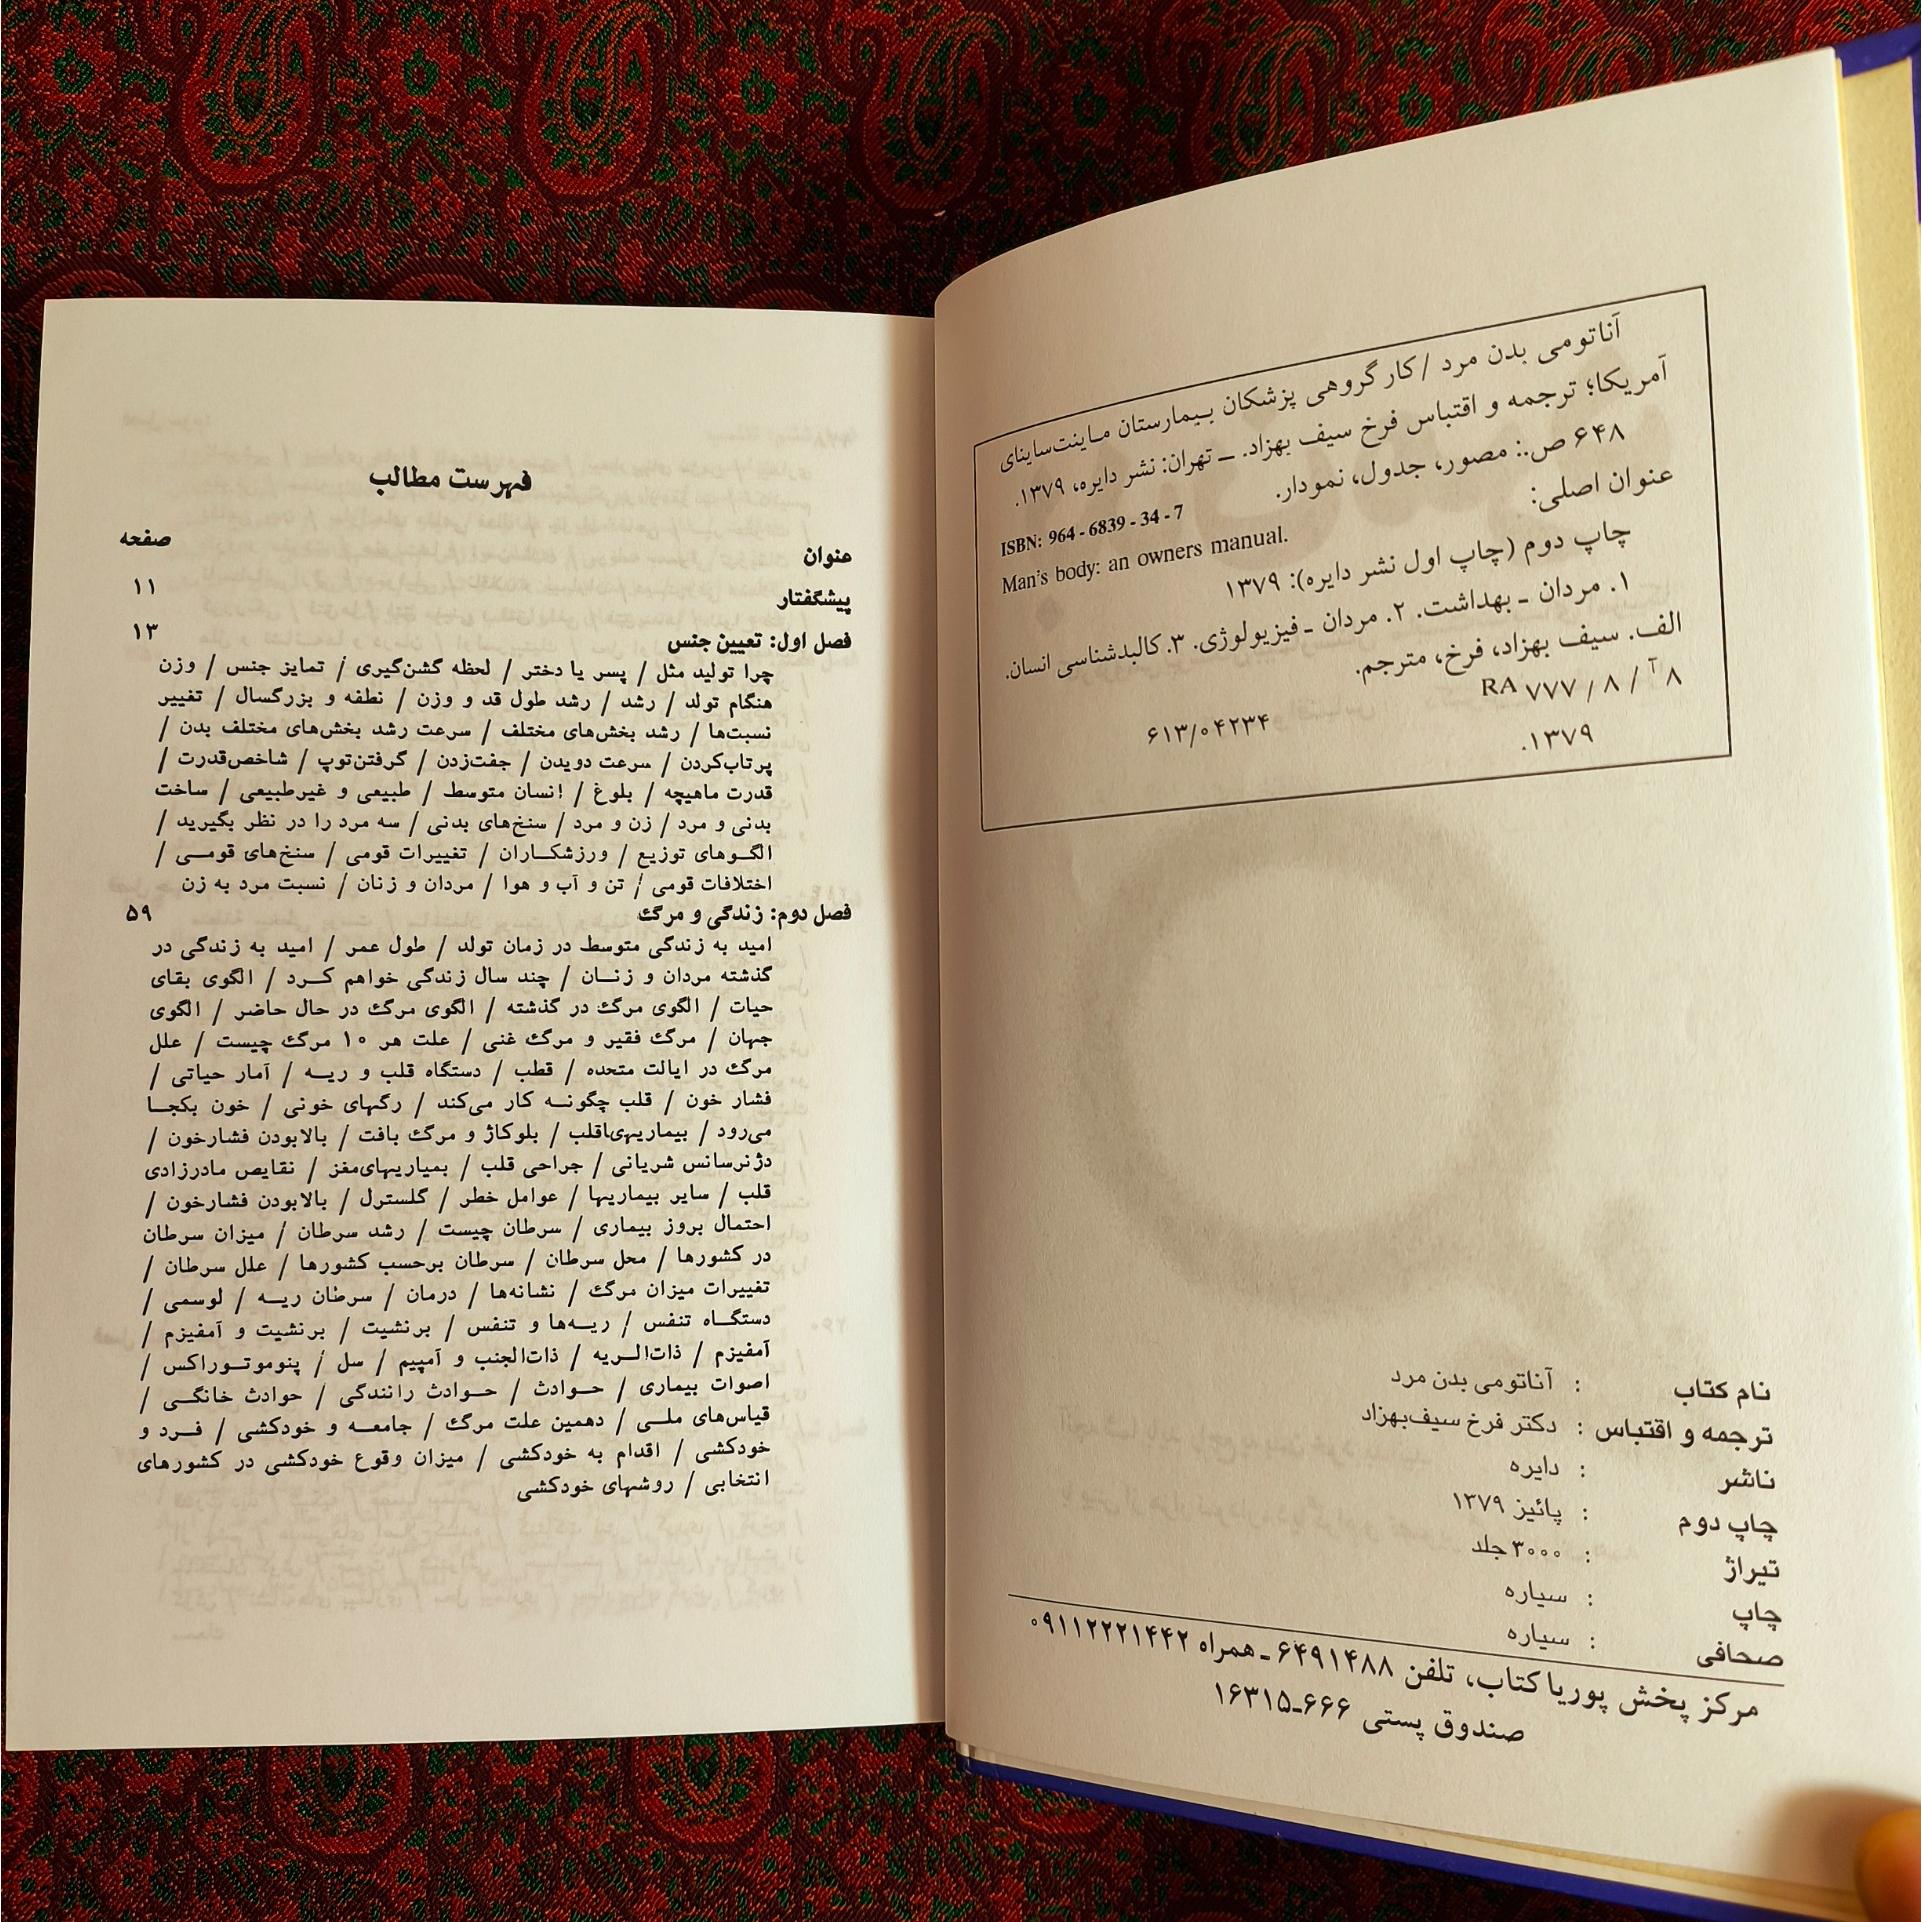 آناتومی بدن مرد /کار گروهی پزشکان بیمارستان ماینت‌ساینای
آمریکا؛ ترجمه و اقتباس فرخ سیف بهزاد. ــ تهران: نشر دایره، ۱۳۷۹.
۶۴۸ ص.: مصور، جدول، نمودار.
ISBN: 964 - 6839 - 34 - 7
عنوان اصلی:
Man's body: an owners manual.
چاپ دوم (چاپ اول نشر دایره): ۱۳۷۹
۱. مردان ـ بهداشت. ۲. مردان ـ فیزیولوژی. ۳. کالبدشناسی انسان.
الف. سیف بهزاد، فرخ، مترجم.
۸ آ / ۸ / ۷۷۷ RA
۶۱۳/۰۴۲۳۴
۱۳۷۹.
نام کتاب : آناتومی بدن مرد
ترجمه و اقتباس : دکتر فرخ سیف‌بهزاد
ناشر : دایره
چاپ دوم : پائیز ۱۳۷۹
تیراژ : ۳۰۰۰ جلد
چاپ : سیاره
صحافی : سیاره
مرکز پخش پوریا کتاب، تلفن ۶۴۹۱۴۸۸ ـ همراه ۰۹۱۱۲۲۲۱۴۴۲
صندوق پستی ۶۶۶-۱۶۳۱۵
فهرست مطالب
عنوان صفحه
پیشگفتار ۱۱
فصل اول: تعیین جنس ۱۳
چرا تولید مثل / پسر یا دختر / لحظه گشن‌گیری / تمایز جنس / وزن
هنگام تولد / رشد / رشد طول قد و وزن / نطفه و بزرگسال / تغییر
نسبت‌ها / رشد بخش‌های مختلف / سرعت رشد بخش‌های مختلف بدن /
پرتاب‌کردن / سرعت دویدن / جفت‌زدن / گرفتن‌توپ / شاخص‌قدرت /
قدرت ماهیچه / بلوغ / انسان متوسط / طبیعی و غیرطبیعی / ساخت
بدنی و مرد / زن و مرد / سنخ‌های بدنی / سه مرد را در نظر بگیرید /
الگوهای توزیع / ورزشکاران / تغییرات قومی / سنخ‌های قومی /
اختلافات قومی / تن و آب و هوا / مردان و زنان / نسبت مرد به زن
فصل دوم: زندگی و مرگ ۵۹
امید به زندگی متوسط در زمان تولد / طول عمر / امید به زندگی در
گذشته مردان و زنان / چند سال زندگی خواهم کرد / الگوی بقای
حیات / الگوی مرگ در گذشته / الگوی مرگ در حال حاضر / الگوی
جهان / مرگ فقیر و مرگ غنی / علت هر ۱۰ مرگ چیست / علل
مرگ در ایالت متحده / قطب / دستگاه قلب و ریه / آمار حیاتی /
فشار خون / قلب چگونه کار می‌کند / رگهای خونی / خون بکجا
می‌رود / بیماریهیاقلب / بلوکاژ و مرگ بافت / بالابودن فشارخون /
دژنرسانس شریانی / جراحی قلب / بمیاریهای‌مغز / نقایص مادرزادی
قلب / سایر بیماریها / عوامل خطر / گلسترل / بالابودن فشارخون /
احتمال بروز بیماری / سرطان چیست / رشد سرطان / میزان سرطان
در کشورها / محل سرطان / سرطان برحسب کشورها / علل سرطان /
تغییرات میزان مرگ / نشانه‌ها / درمان / سرطان ریه / لوسمی /
دستگاه تنفس / ریه‌ها و تنفس / برنشیت / برنشیت و آمفیزم /
آمفیزم / ذات‌الریه / ذات‌الجنب و آمپیم / سل / پنوموتوراکس /
اصوات بیماری / حوادث / حوادث رانندگی / حوادث خانگی /
قیاس‌های ملی / دهمین علت مرگ / جامعه و خودکشی / فرد و
خودکشی / اقدام به خودکشی / میزان وقوع خودکشی در کشورهای
انتخابی / روشهای خودکشی